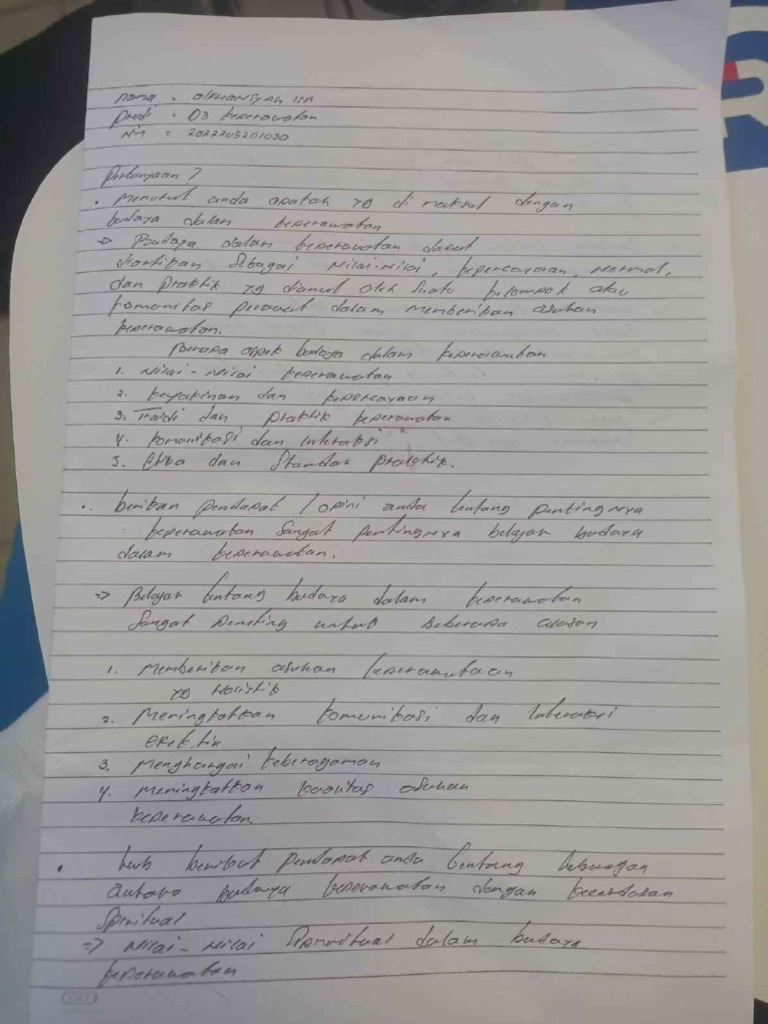 nama :
Prodi : D3 keperawatan
Nim : 2022205201030
Pertanyaan ?
. Menurut anda apakah yg di maksut dengan
budaya dalam keperawatan
=> Budaya dalam keperawatan dapat
diartikan sebagai Nilai-Nilai, kepercayaan, Normal,
dan praktik yg dianut oleh suatu kelompok atau
komunitas perawat dalam memberikan asuhan
keperawatan.
Berapa aspek budaya dalam keperawatan
1. Nilai-Nilai keperawatan
2. keyakinan dan kepercayaan
3. dan praktik keperawatan
4. komunikasi dan interaksi
5. Etika dan standar
.. berikan pendapat / opini anda tentang pentingnya
keperawatan sangat pentingnya belajar budaya
dalam keperawatan.
=> Belajar tentang budaya dalam keperawatan
sangat penting untuk beberapa alasan
1. Memberikan asuhan
yg Holistik
2. Meningkatkan komunikasi dan interaksi
3. Menghargai keberagaman
4. Meningkatkan kualitas asuhan
keperawatan.
. pendapat anda tentang hubungan
antara budaya keperawatan dengan kecerdasan
spiritual
=> Nilai-Nilai dalam budaya
keperawatan